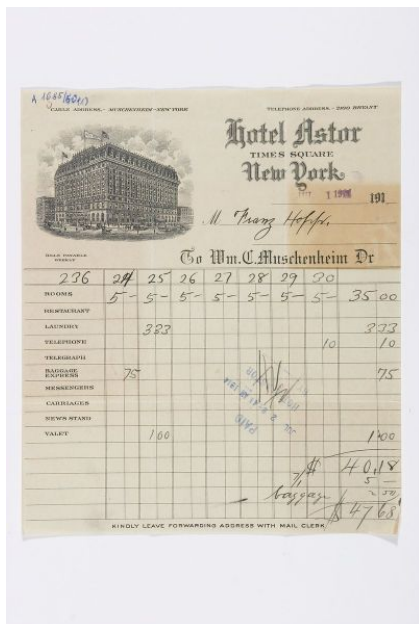 A 1685/60117
CABLE ADDRESS.- MUSCHENHEIM-NEW YORK
TELEPHONE ADDRESS.- 2100 BRYANT
Hotel Astor
TIMES SQUARE
New York
1 191
M. Franz Hopp.
To Wm. C. Muschenheim Dr
236 24 25 26 27 28 29 30
ROOMS 5- 5- 5- 5- 5- 5- 5- 35 00
RESTAURANT
LAUNDRY 333 3 33
TELEPHONE 10 10
TELEGRAPH
BAGGAGE EXPRESS 75 75
MESSENGERS
CARRIAGES
NEWS STAND
VALET 1 00 1 00
PAID
$ 40.18
7/1 5 -
baggage 2 50
$ 47 68
KINDLY LEAVE FORWARDING ADDRESS WITH MAIL CLERK